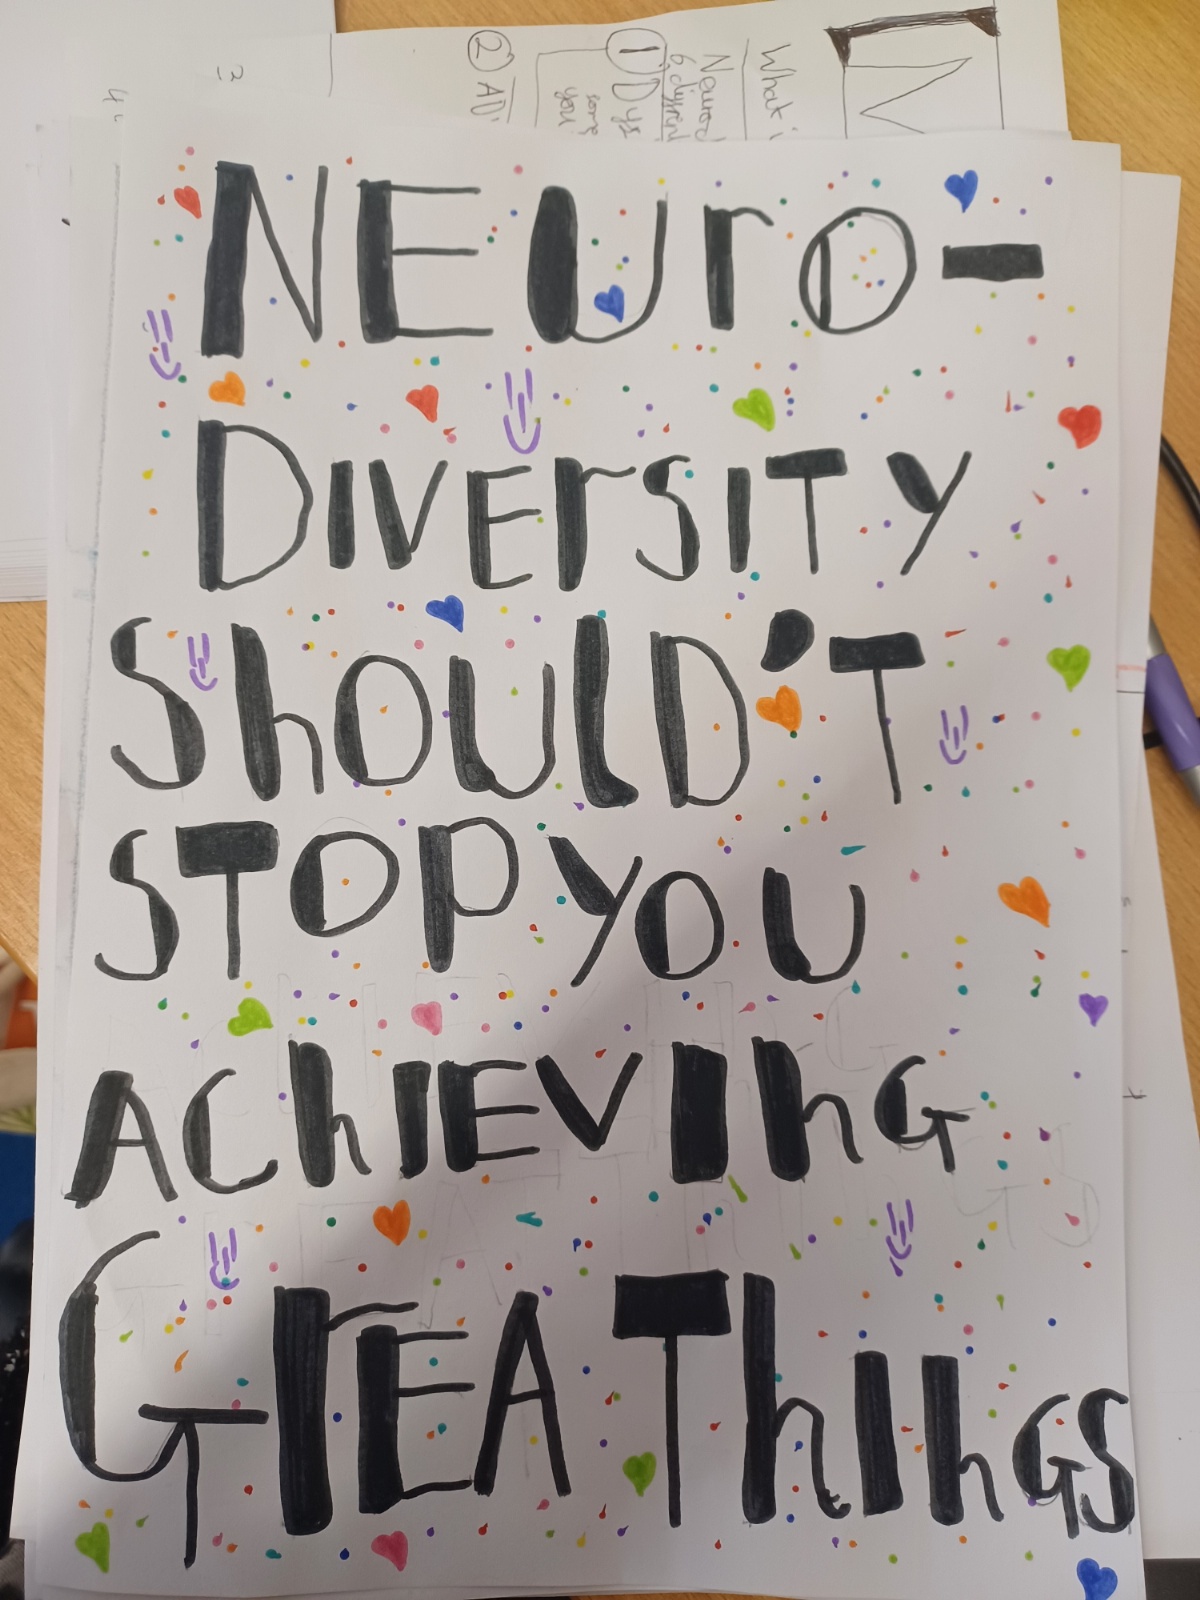 NEUro-
DIVErSITY
ShOULD'T
STOP YOU
AChIEVINg
GrEAThINGS
What i
Neurod
6 differen
① Dys
some
you
② AD
3
4